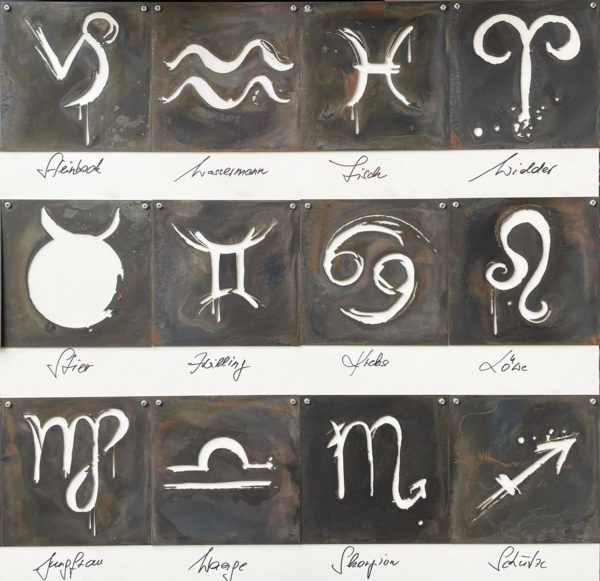 Steinbock Wassermann Fisch Widder
Stier Zwilling Krebs Löwe
Jungfrau Waage Skorpion Schütze